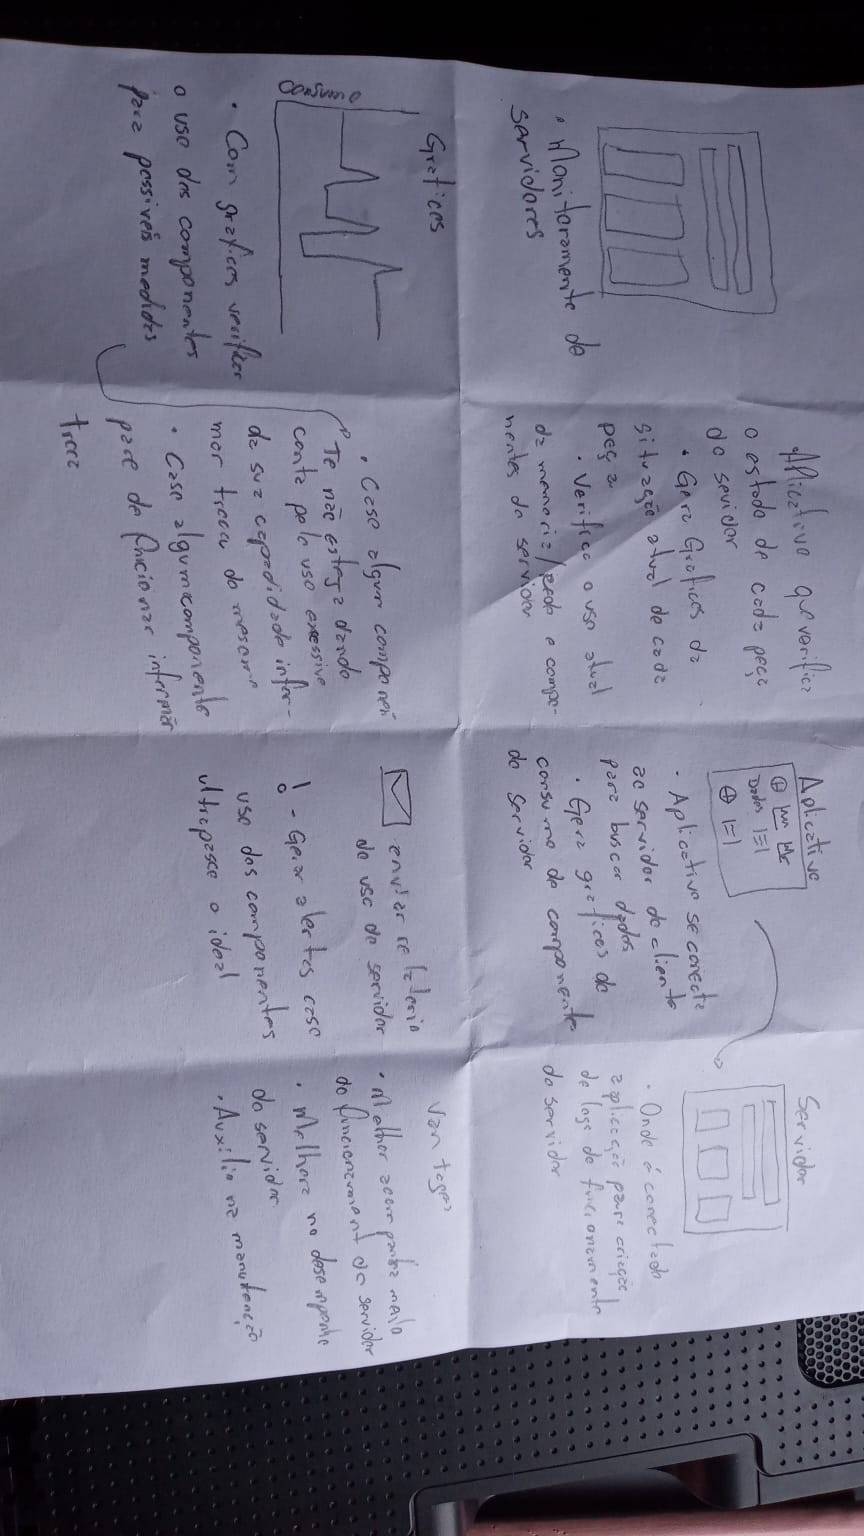 • Monitoramento de
servidores
Aplicativo que verifica
o estado de cada peça
do sevidor
• Gera Graficos da
situação atual de cada
peça
• Verifica o uso atual
da memoria/rede e compo-
nentes do servidor
Aplicativo
Dados
• Aplicativo se conecta
ao servidor do cliente
para buscar dados
• Gera graficos do
consumo do componente
do servidor
Servidor
• Onde é conectado
aplicação para criação
de logs de funcionamento
do servidor
Graficos
Consumo
• Com graficos verificar
o uso dos componentes
para possiveis medidas
• Caso algum componen
Te não esteja dando
conta pelo uso excessivo
da sua capadidade infor-
mar troca do mesmo
• Caso algum componente
pare de funcionar informar
troca
enviar relatorio
do uso do servidor
! - Gerar alertas caso
uso dos componentes
ultrapasse o ideal
Vantages
• Melhor acompanhamento
do funcionament do servidor
• Melhora no desempenho
do servidor
• Auxilio na manutenção